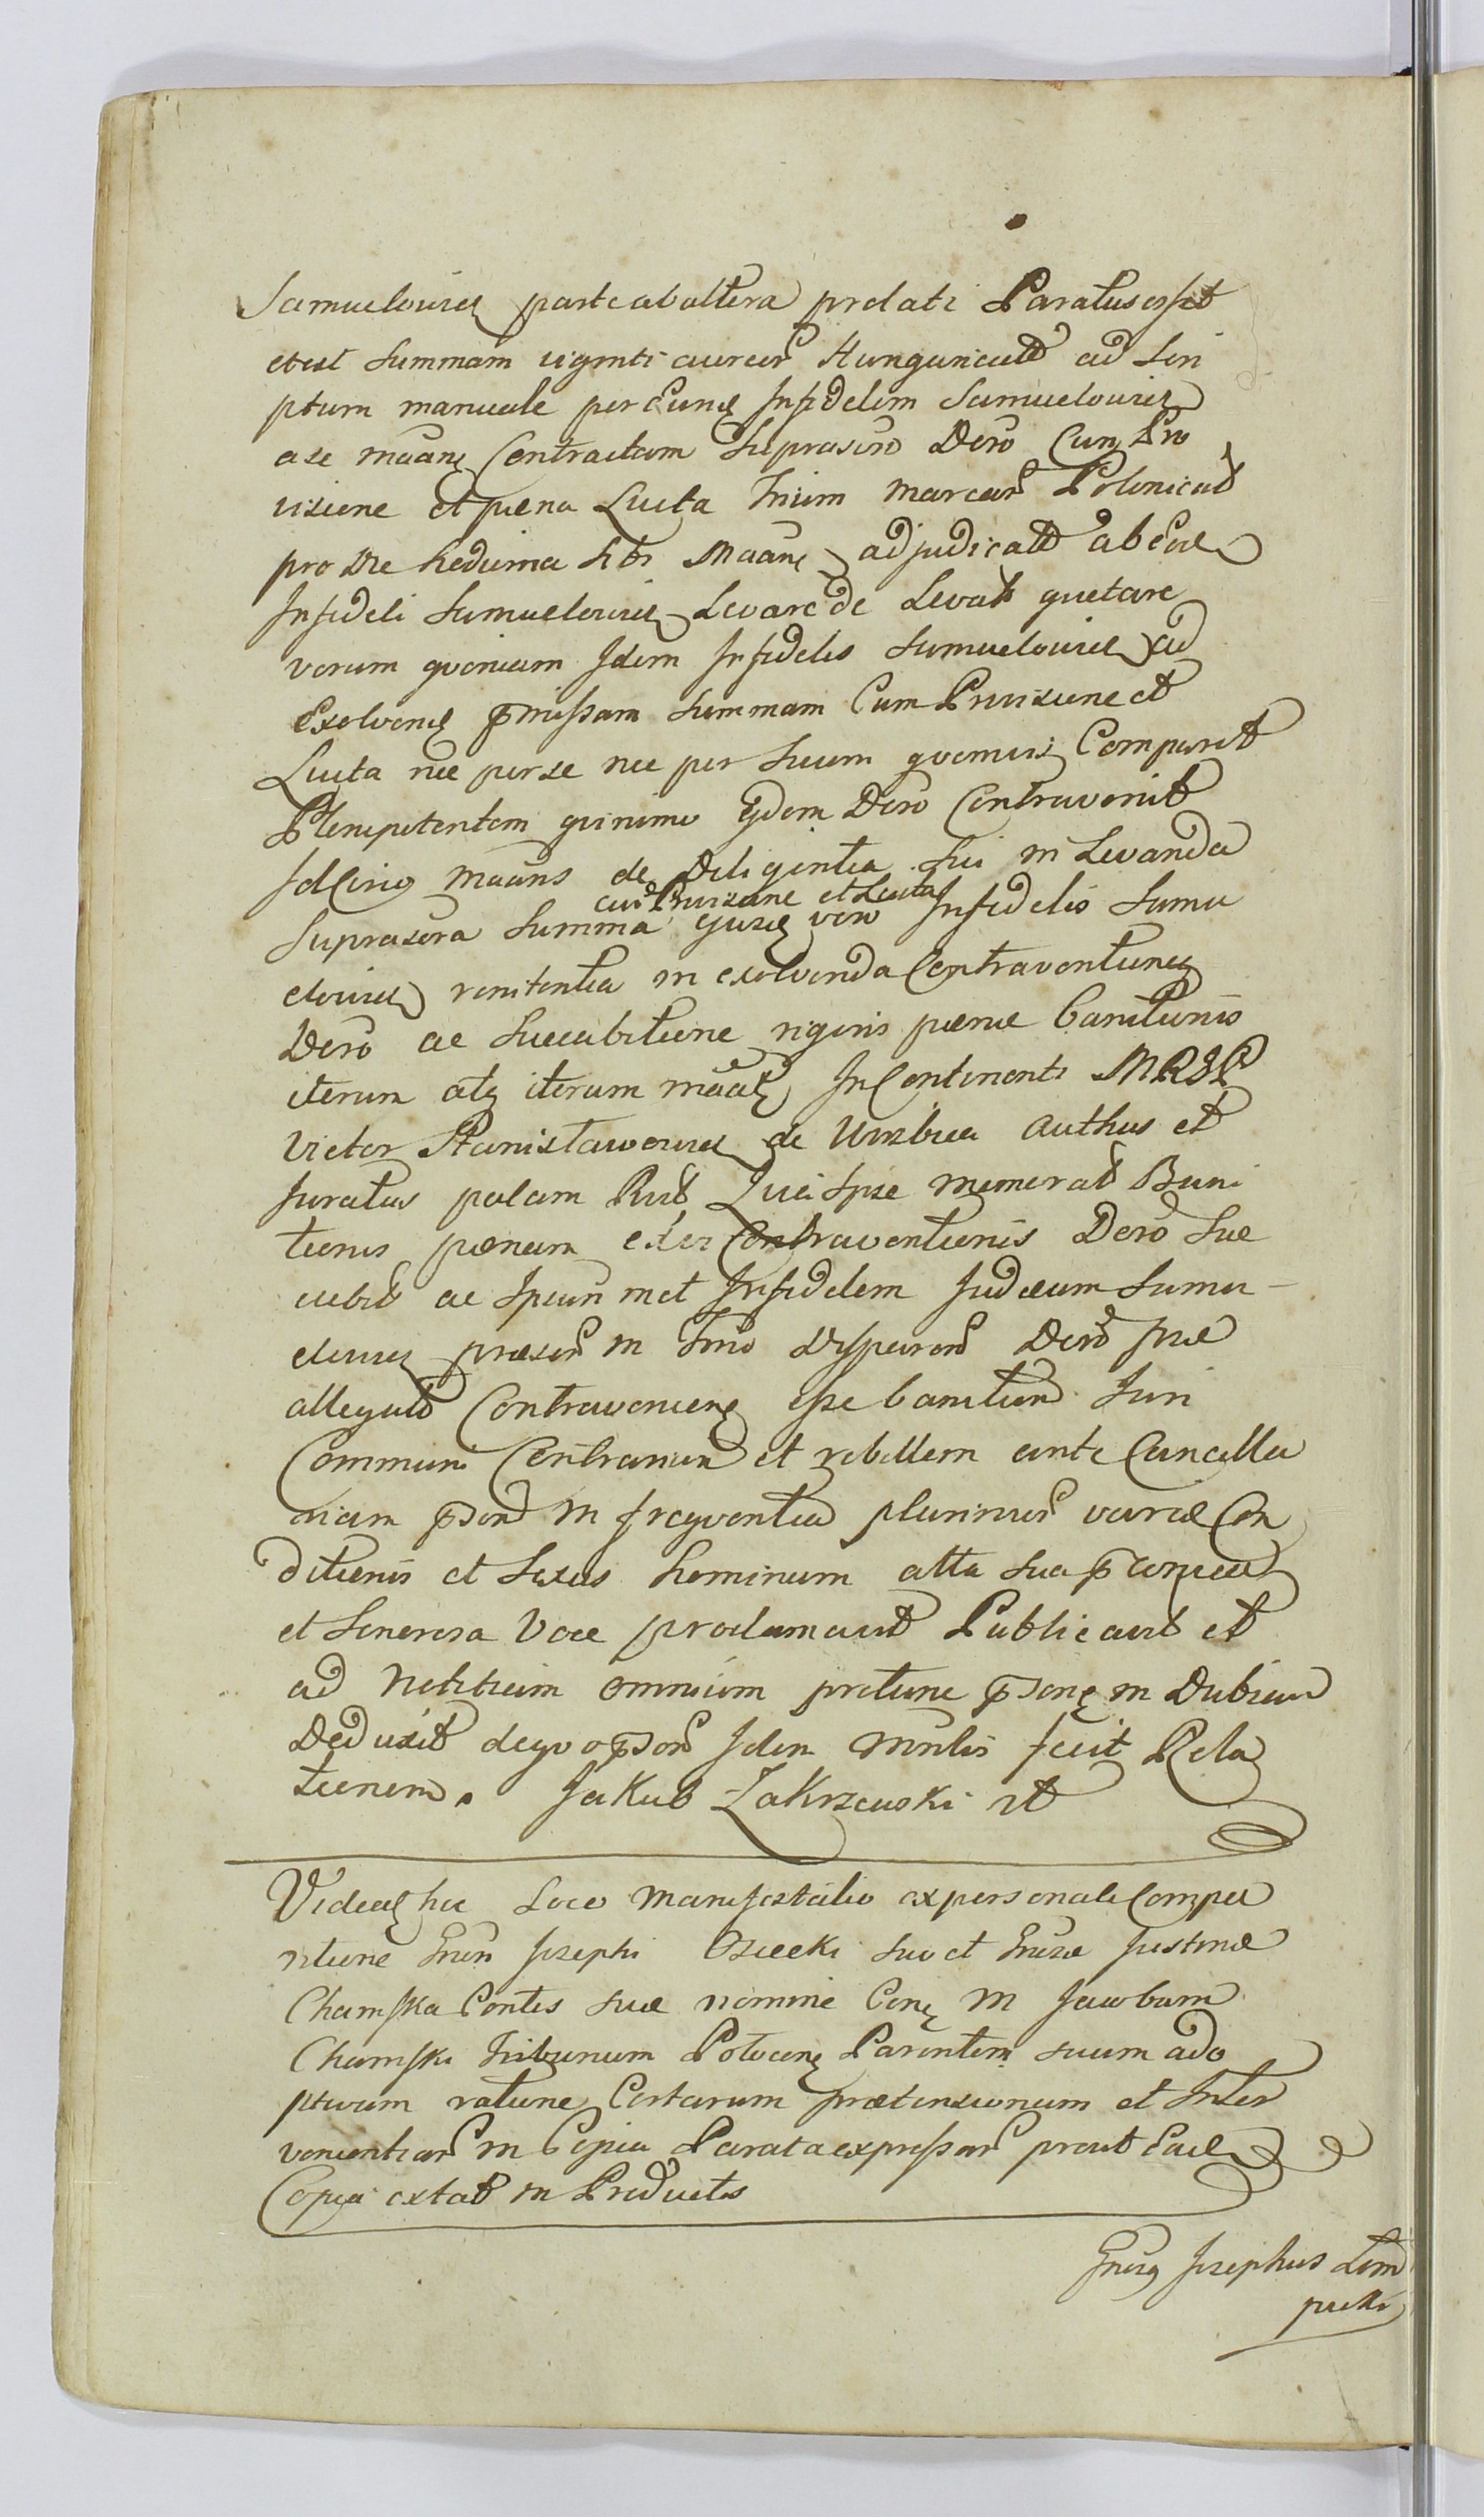 Samuelowicz parte ab altera prolati Paratus esset
et est Summam viginti aureor Hungarical ad Scri
ptum manuale per Eund Infidelem Samuelowicz
a se Contractam Suprascro Dero Cum Pro
visione et pæna Lucta Trium marcar Polonical
pro die hodierna sibi adjudicatt ab Eod
Infideli Samuelowicz Levare de Levatt quetare
verum quoniam Idem Infidelis Samuelowicz ad
Exolvend præmissam Summam Cum Provisione et
Lucta nec per se nec per Suum quemvis Comparet
Plenipotentem quinimo Ejdem Dero Contravenit
Idcirco de Diligentia Sui in Levanda
cum Provisione et Lucta
Suprascra Summa Ejusq vero Infidelis Samu
elowicz renitentia in exolvenda Contraventioneq
Dero ac Succubitione rigoris pænæ Banitionis
iterum atq iterum In Continenti MRSP
Victor Stanisławowicz de Authus et
Juratus palam Quia Ipse memorat Bani
tionis pænam Contraventionis Dero Suc
cubit ac Ipsum met Infidelem Judæum Samu-
elowicz præsen in Dero præ
allegato Contravenien esse banitum Juri
Communi Contrarium et rebellem ante Cancella
riam in frequentia plurimor variæ Con
ditionis et Sexus hominum alta sua
et Sonorosa Voce proclamavit Publicavit et
ad Notitiam omnium in
Deduxit de quo Idem fecit Rela
tionem. Jakub Zakrzewski
Videat hic Loco Manifestatio ex personali Compa
ritione Josephi Osiecki suo et Justinæ
Chamska Contis suæ nomine Con in Jacobum
Chamski Tribunum Plocen Parentem suum ado
ptivum ratione Certarum prætensionum et Inter
venientiar in Copia Parata expressar prout Ead
Copia extat in Productis
Josephus Lem
picki